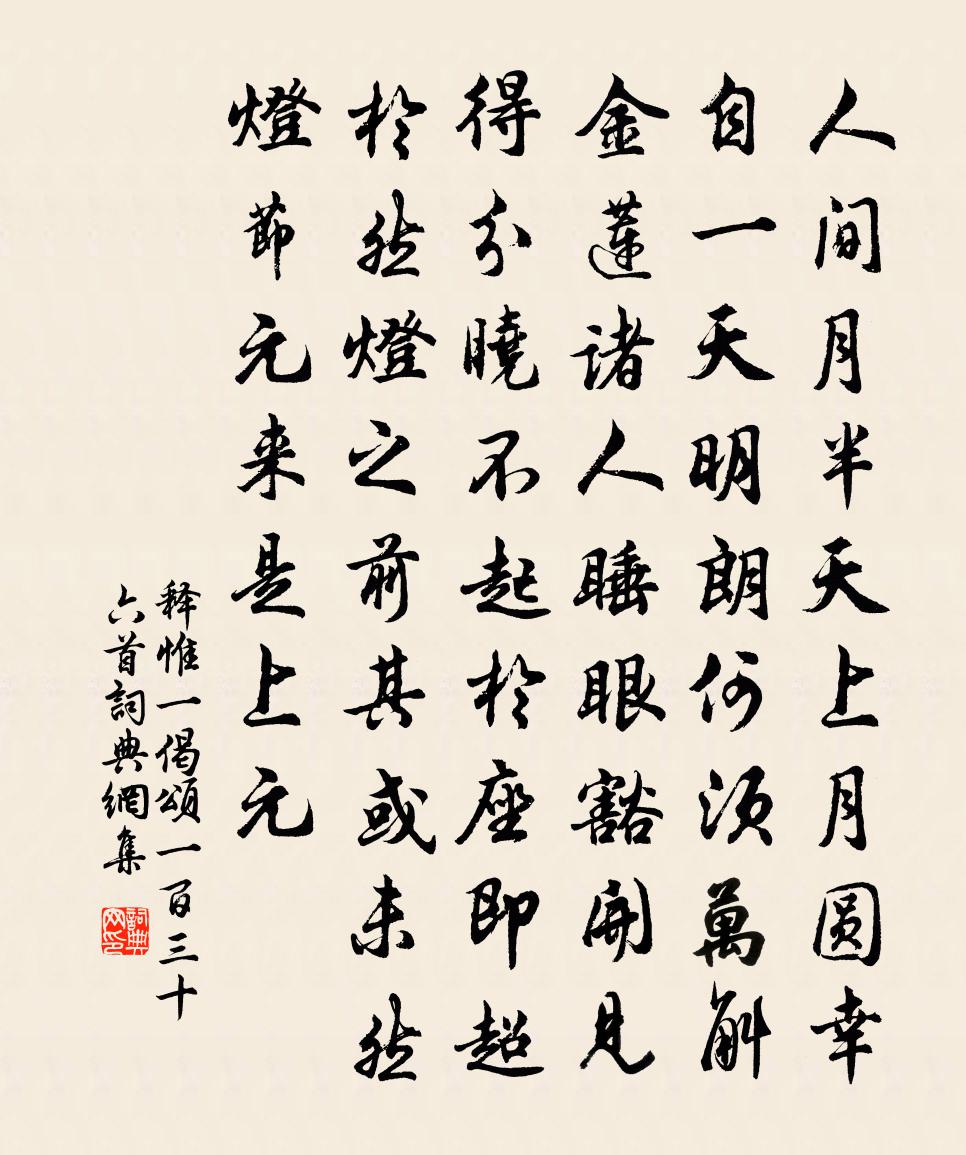 人间月半天上月圆幸
自一天明朗何须萬斛
金蓮诸人睡眼豁開見
得分曉不起於座即超
於然燈之前其或未然
燈節元来是上元
释惟一偈頌一百三十
六首詞典網集
詞典网印